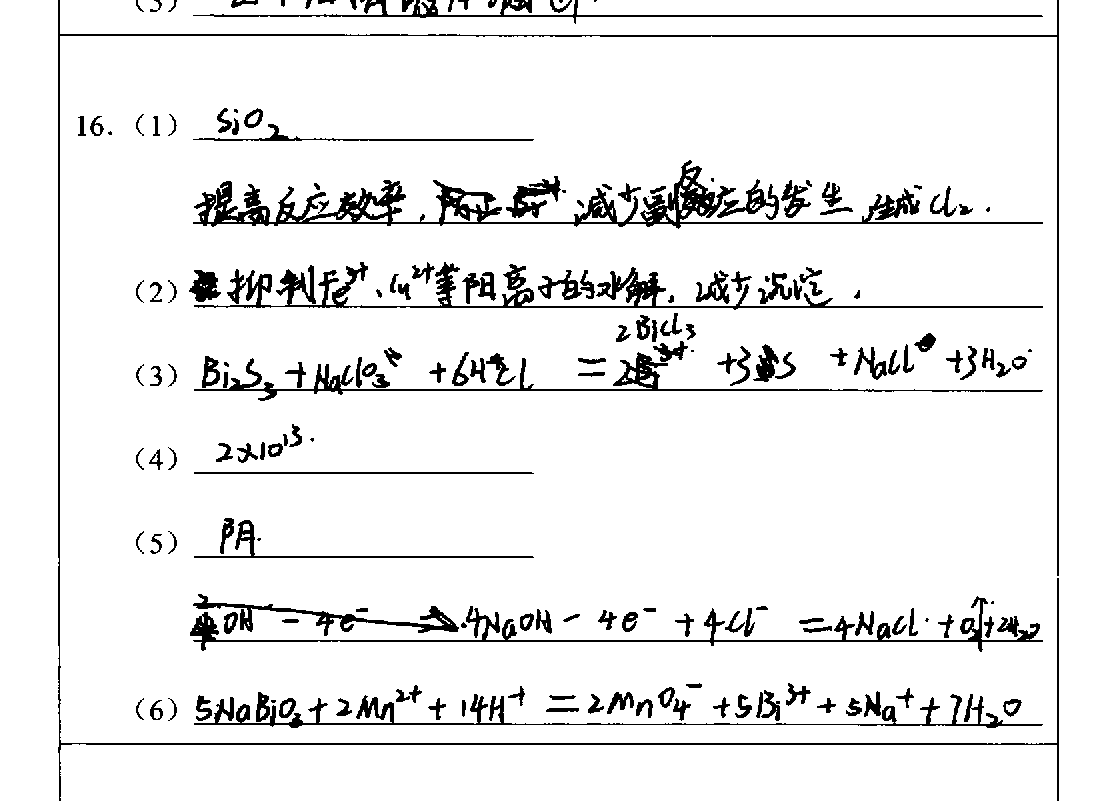 (3)
16. (1) SiO₂
提高反应效率, 减少副反应的发生, 生成Cl₂.
(2) 抑制Fe³⁺、Cu²⁺等阳离子的水解, 减少沉淀.
2BiCl₃
(3) Bi₂S₃ + NaClO₃ + 6HCl = +3S + NaCl + 3H₂O
(4) 2×10¹³.
(5) 阴.
4NaOH − 4e⁻ + 4Cl⁻ = 4NaCl + O₂↑ + 2H₂O
(6) 5NaBiO₃ + 2Mn²⁺ + 14H⁺ = 2MnO₄⁻ + 5Bi³⁺ + 5Na⁺ + 7H₂O